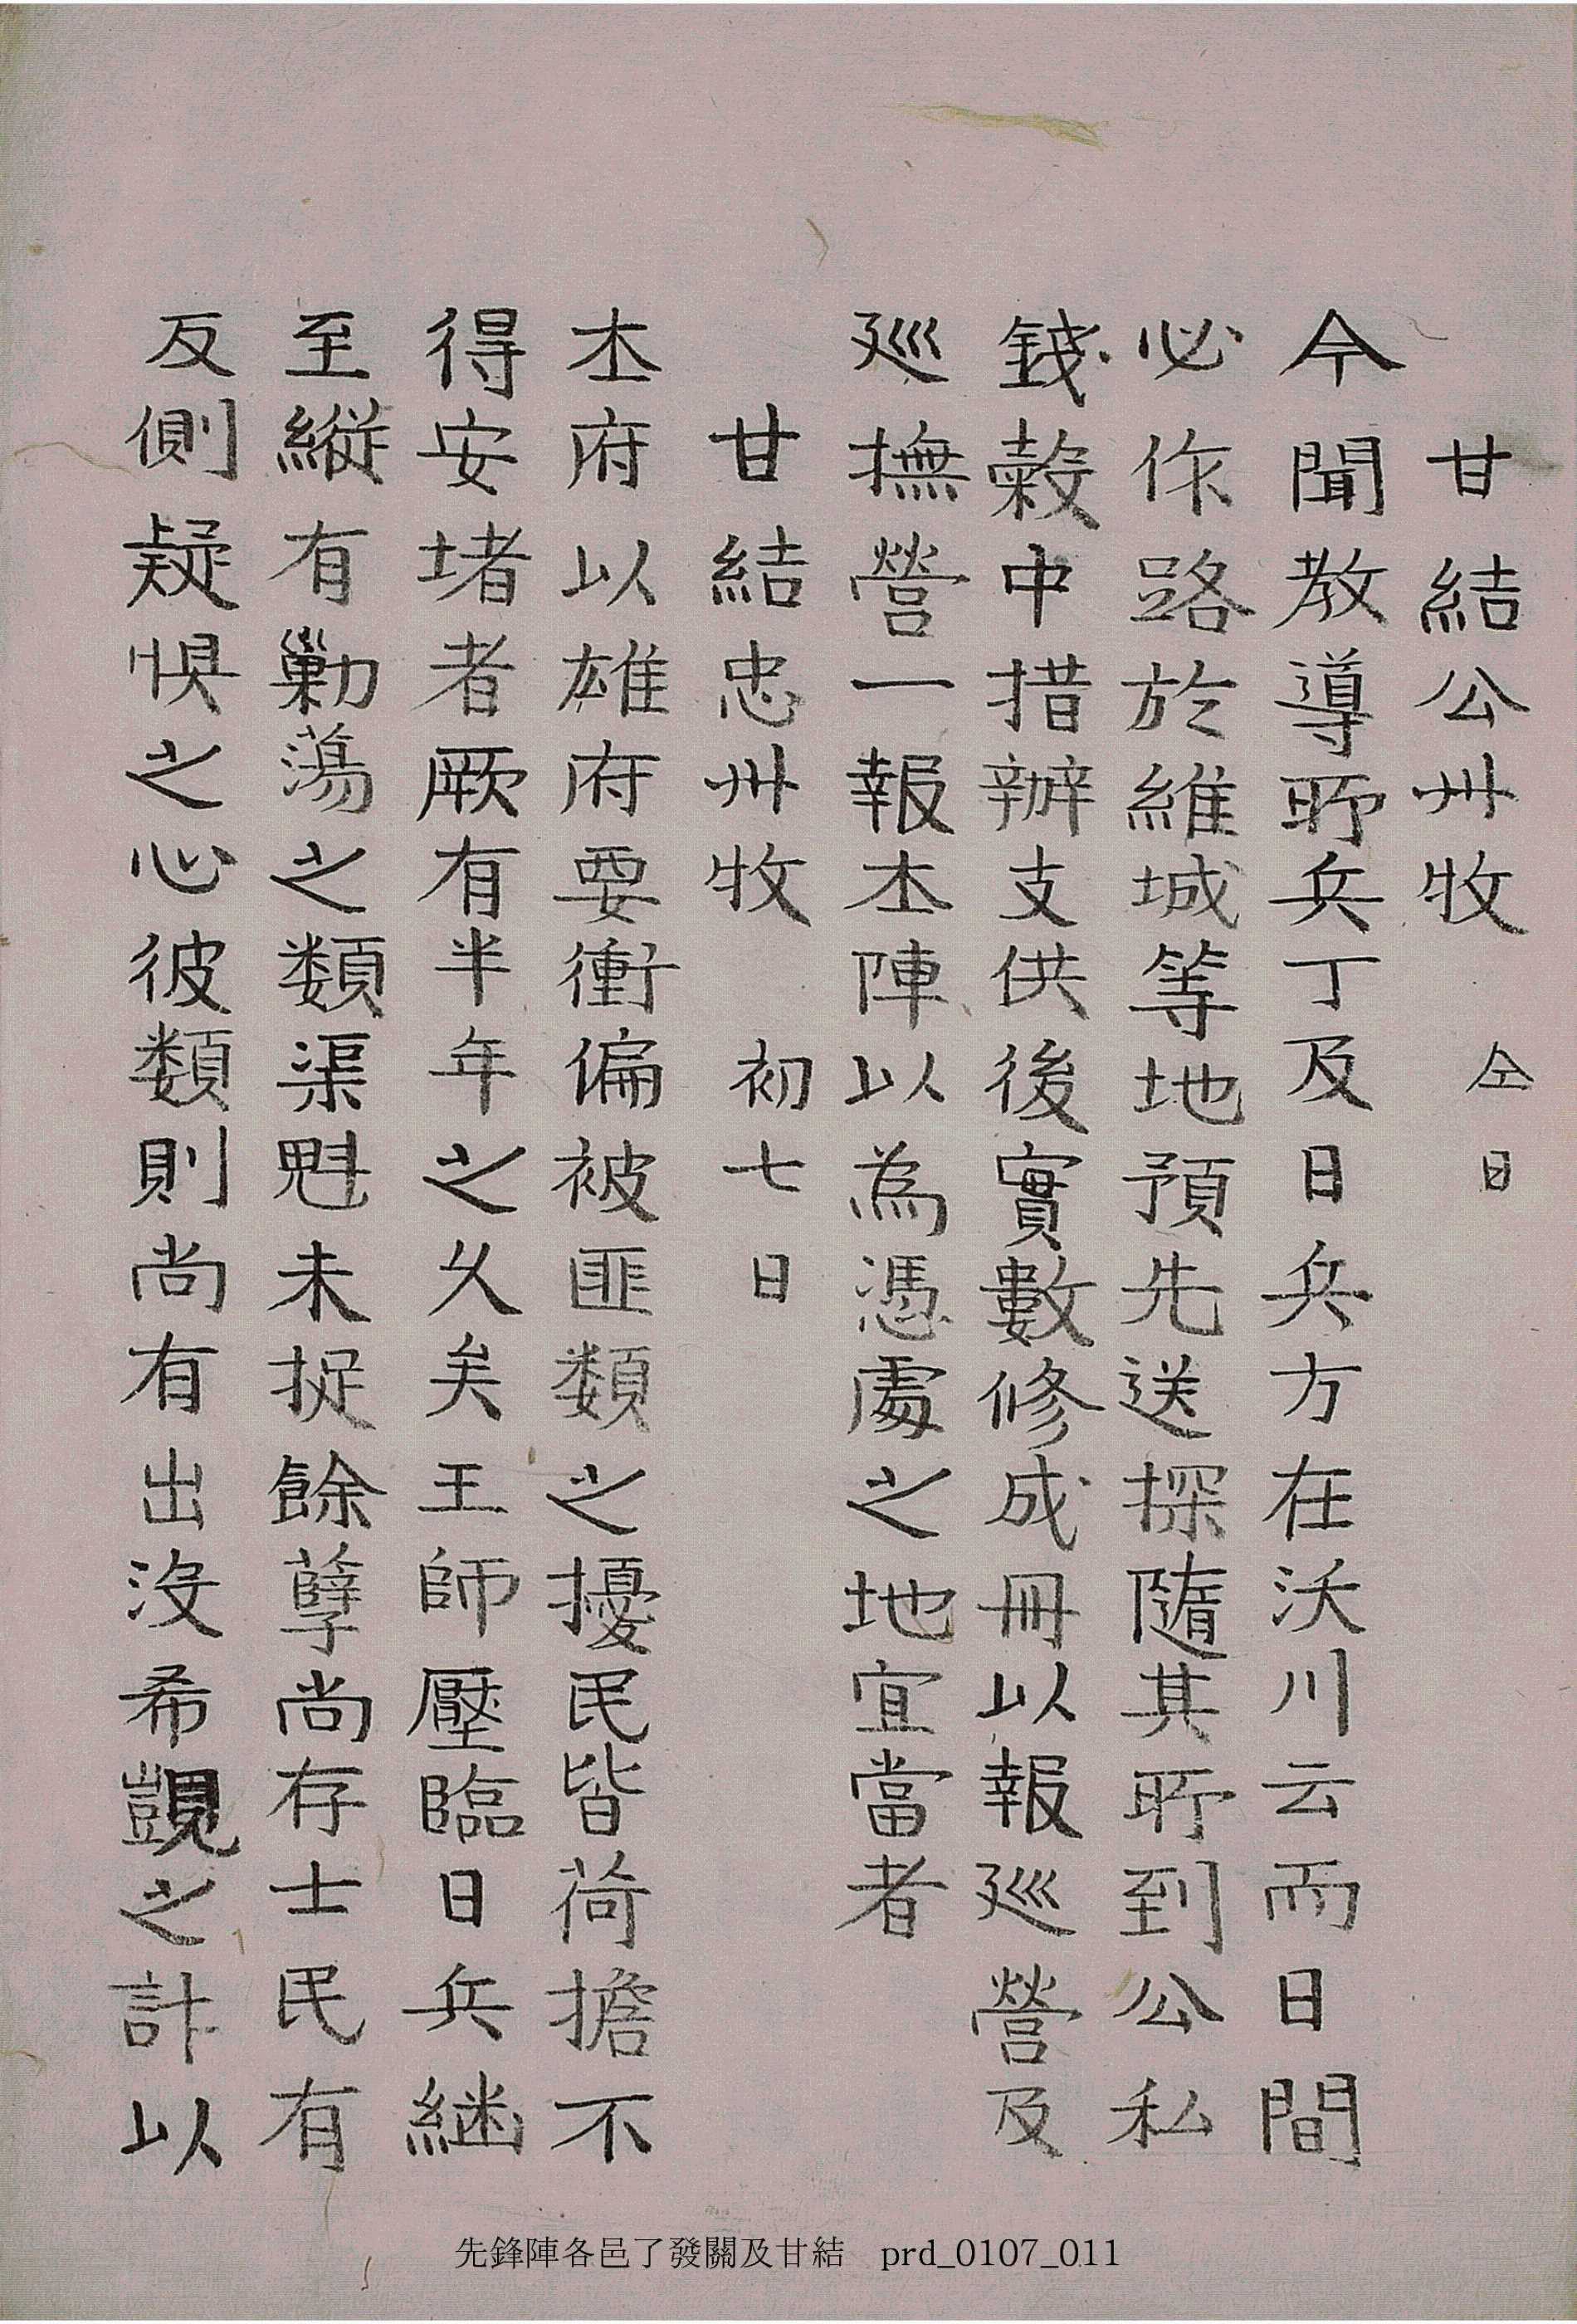 甘結公州牧 仝日
今聞教導所兵丁及日兵方在沃川云而日間
必作路於維城等地預先送探隨其所到公私
錢穀中措辦支供後實數修成冊以報巡營及
巡撫營一報本陣以為憑處之地宜當者
甘結忠州牧 初七日
本府以雄府要衝偏被匪類之擾民皆荷擔不
得安堵者厥有半年之久矣王師壓臨日兵継
至縱有勦蕩之類渠魁未捉餘孽尚存士民有
反側疑惧之心彼類則尚有出沒希覬之計以
先鋒陣各邑了發關及甘結 prd_0107_011